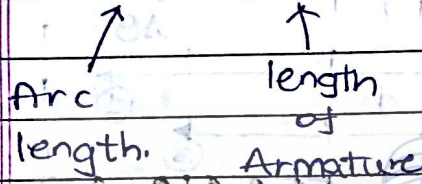 Arc
length.
length
of
Armature